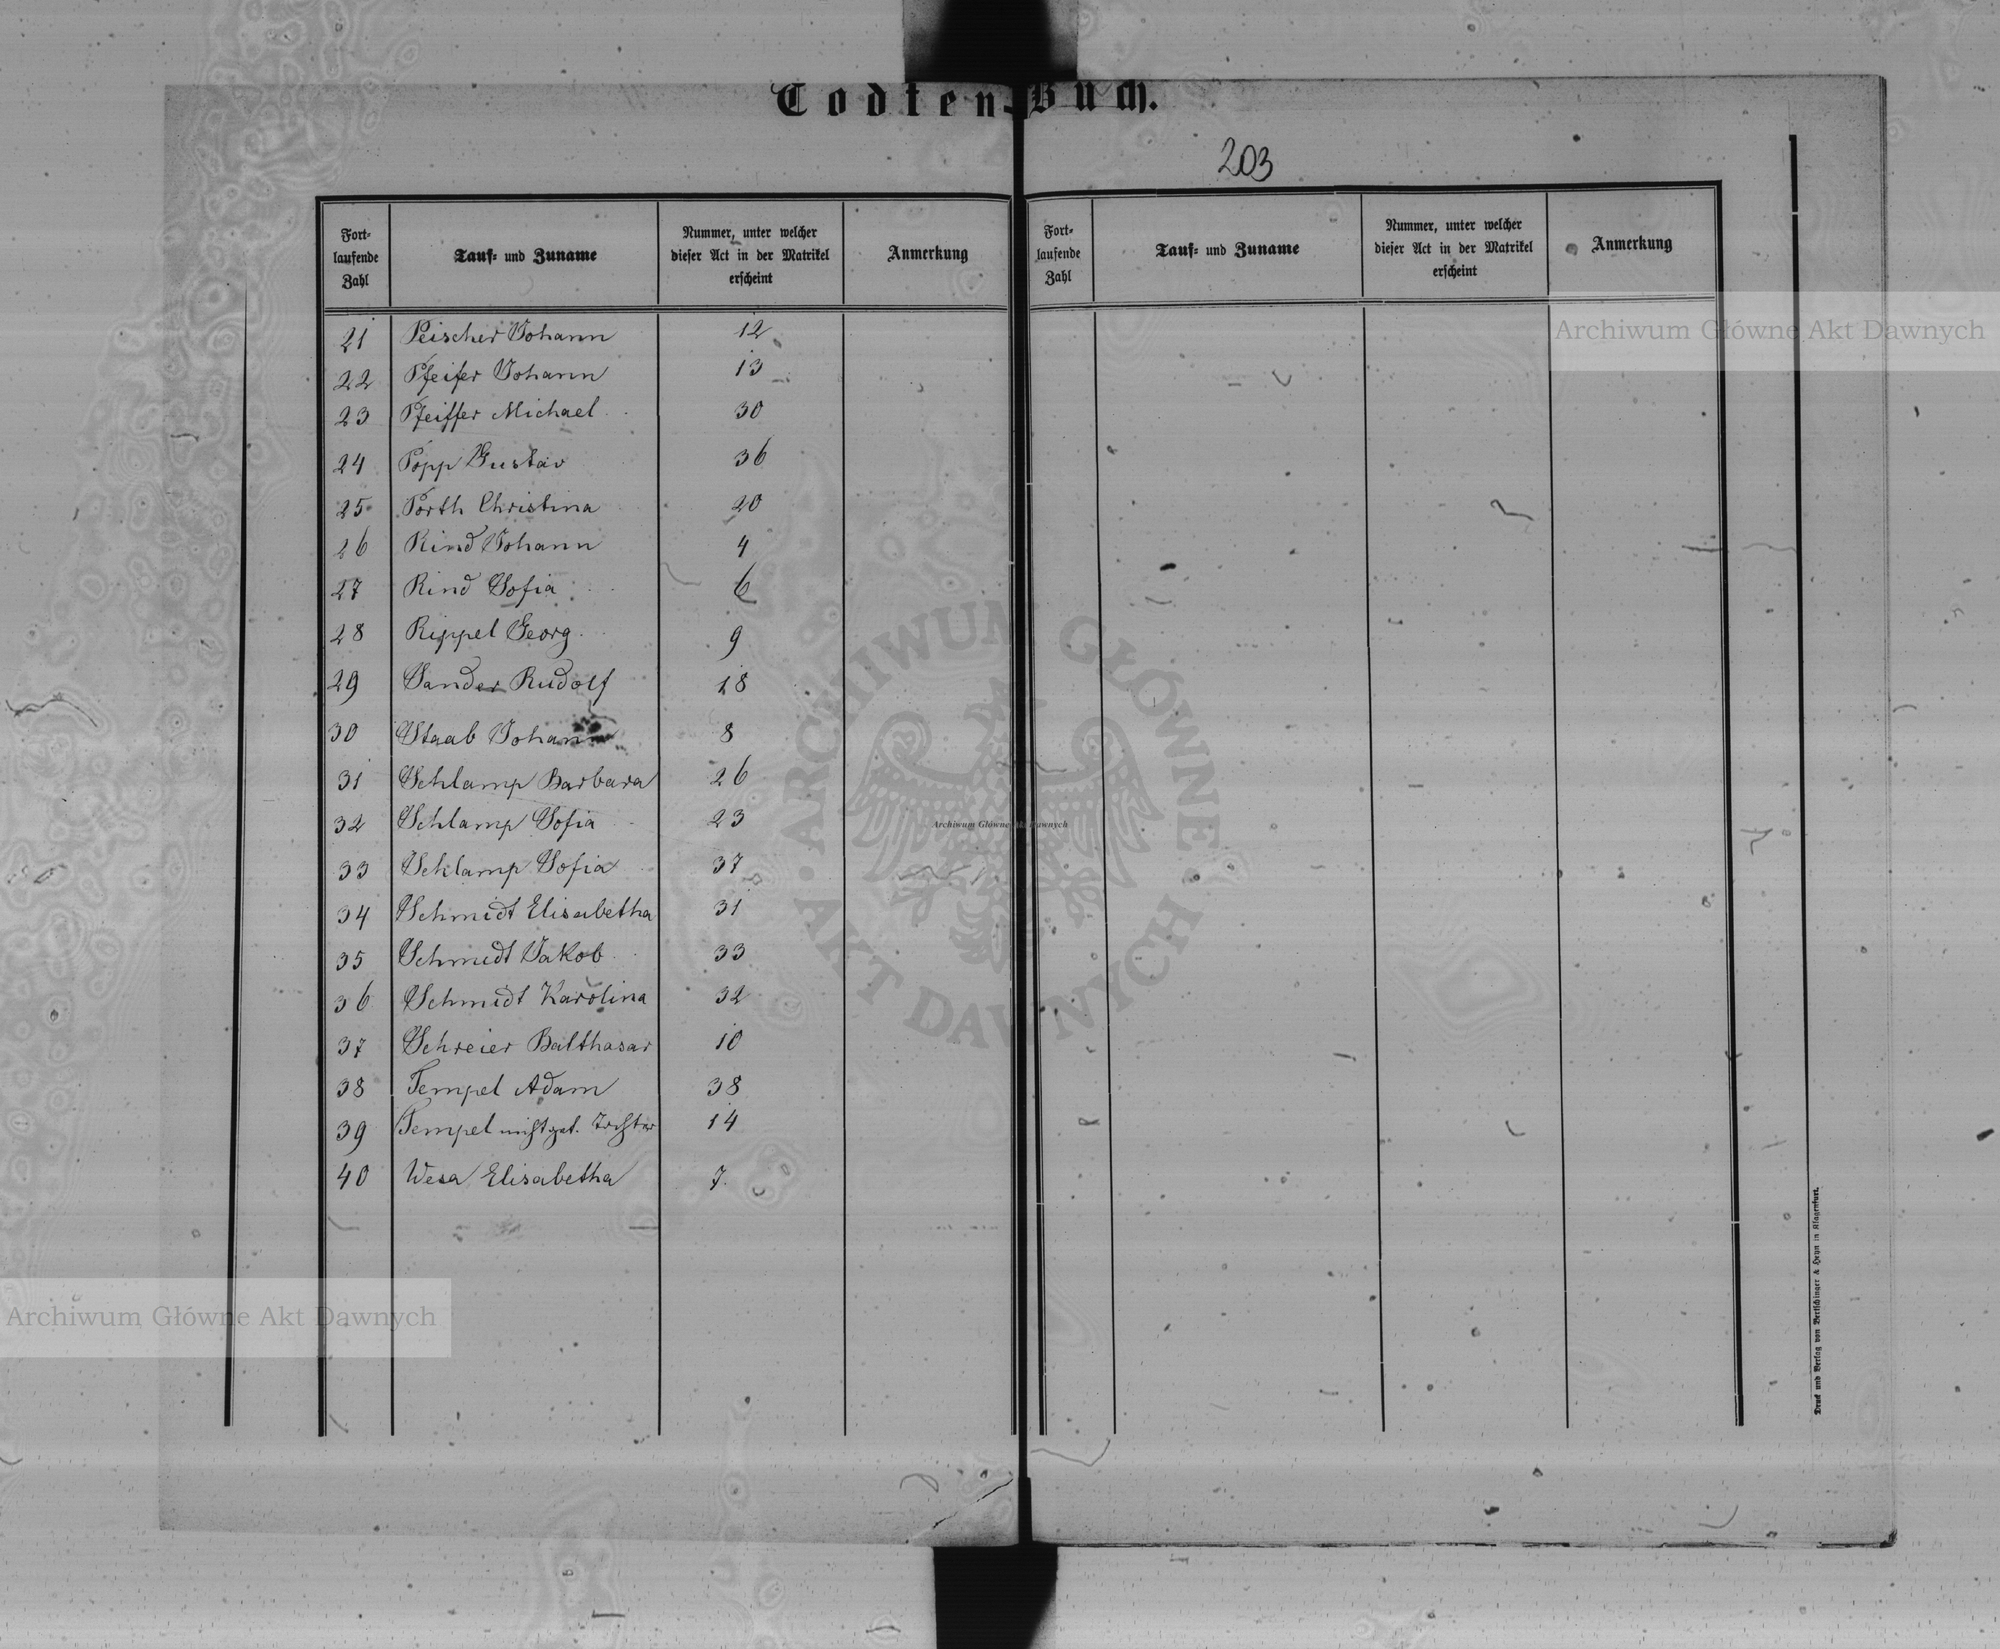 Todten-Buch.
203
Fort-
laufende
Zahl
Tauf- und Zuname
Nummer, unter welcher
dieser Act in der Matrikel
erscheint
Anmerkung
21 Peischer Johann 12
22 Pfeifer Johann 13
23 Pfeiffer Michael 30
24 Popp Gustav 36
25 Porth Christina 20
26 Rind Johann 4
27 Rind Sofia 6
28 Rippel Georg 9
29 Sander Rudolf 18
30 Staab Johann 8
31 Schlamp Barbara 26
32 Schlamp Sofia 23
33 Schlamp Sofia 37
34 Schmidt Elisabetha 31
35 Schmidt Jakob 33
36 Schmidt Karolina 32
37 Schreier Balthasar 10
38 Tempel Adam 38
39 Tempel 14
40 Wesa Elisabetha 7
Fort-
laufende
Zahl
Tauf- und Zuname
Nummer, unter welcher
dieser Act in der Matrikel
erscheint
Anmerkung
Archiwum Główne Akt Dawnych
ARCHIWUM GŁÓWNE AKT DAWNYCH
Archiwum Główne Akt Dawnych
Archiwum Główne Akt Dawnych
Druck und Verlag von Bertschinger & Heyn in Klagenfurt.